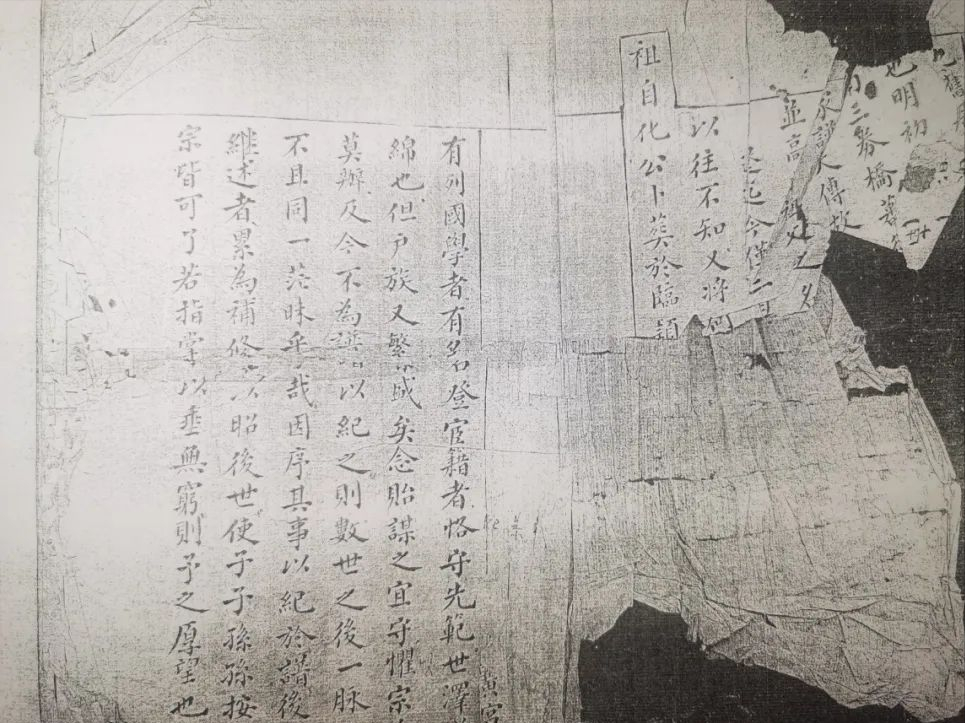 舊
也明初
小三郎橋
大傳故
並高祖父之名
迄今僅二
以往不知又將何
祖自化公卜葬於臨潁
有列國學者有名登宦籍者恪守先範世澤
綿也但戶族又繁盛矣念貽謀之宜守懼宗
莫辦及今不為譜以紀之則數世之後一脉
不且同一茫昧乎哉因序其事以紀於譜後
繼述者累為補修以昭後世使子子孫孫按
宗皆可了若指掌以垂無窮則予之厚望也